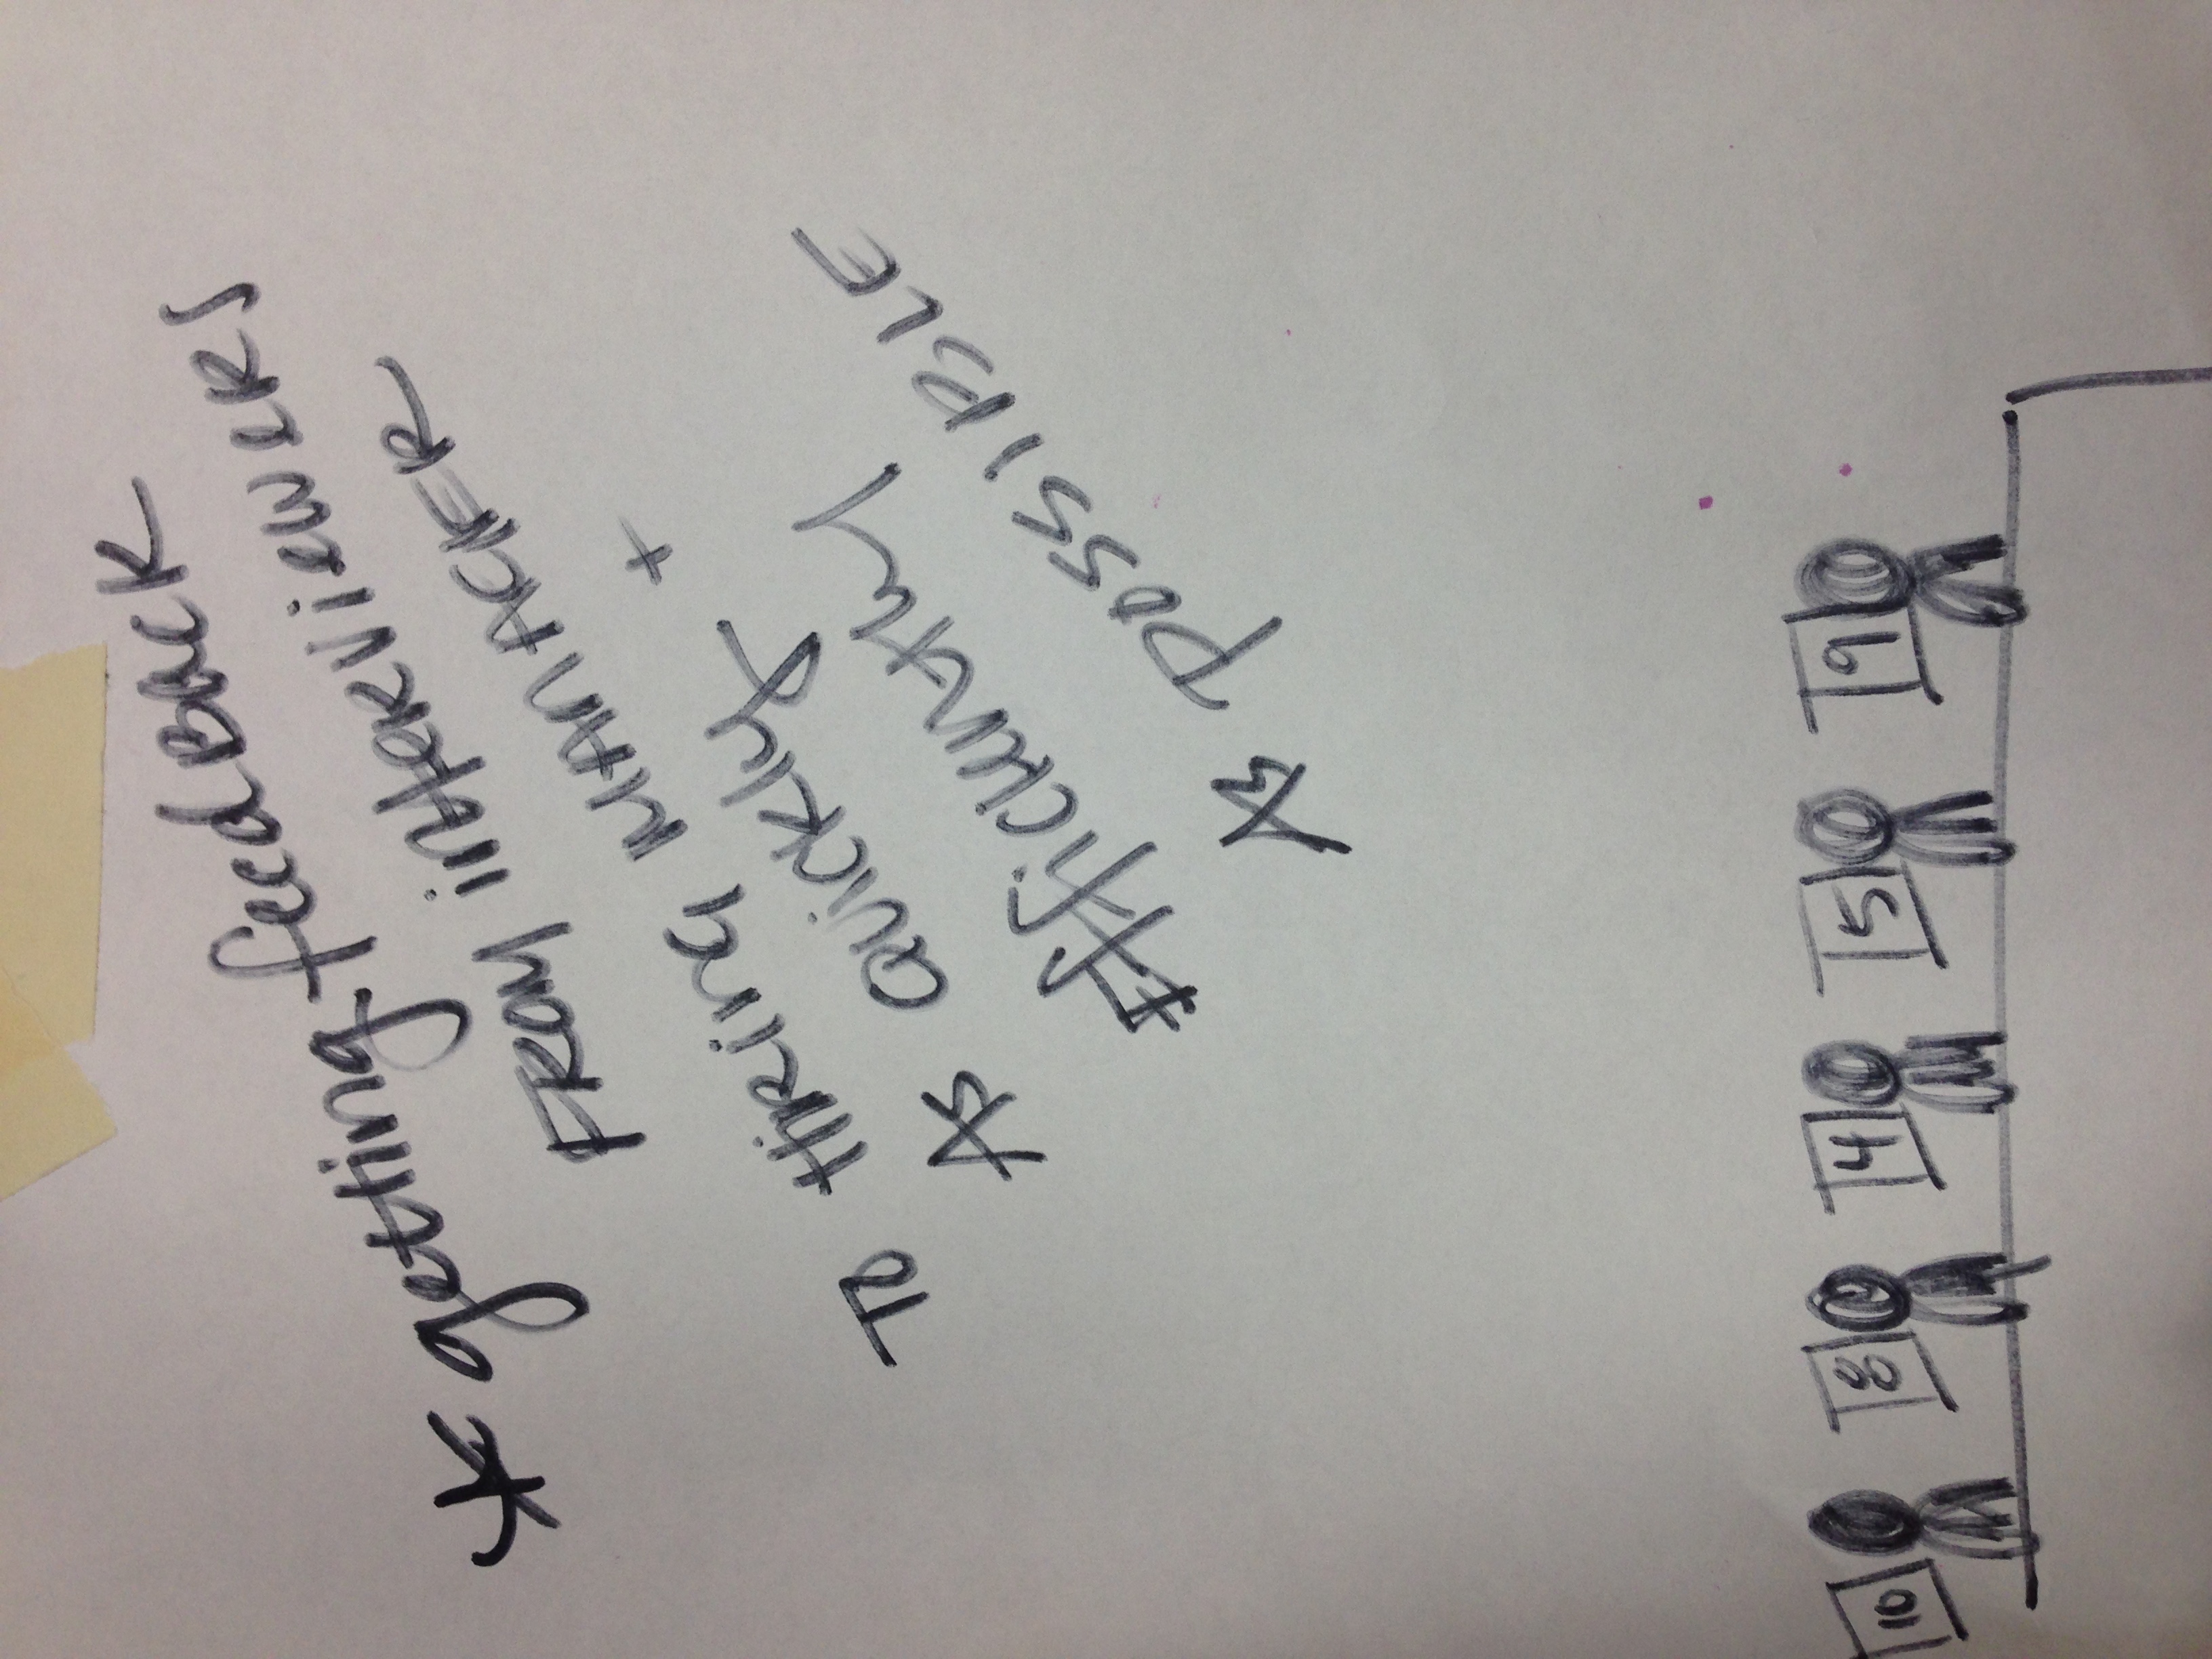 * getting feedBACK
FROM interviewers
To Hiring MANAGER
As Quickly +
Efficiently
As POSSIBLE
10 8 4 5 9